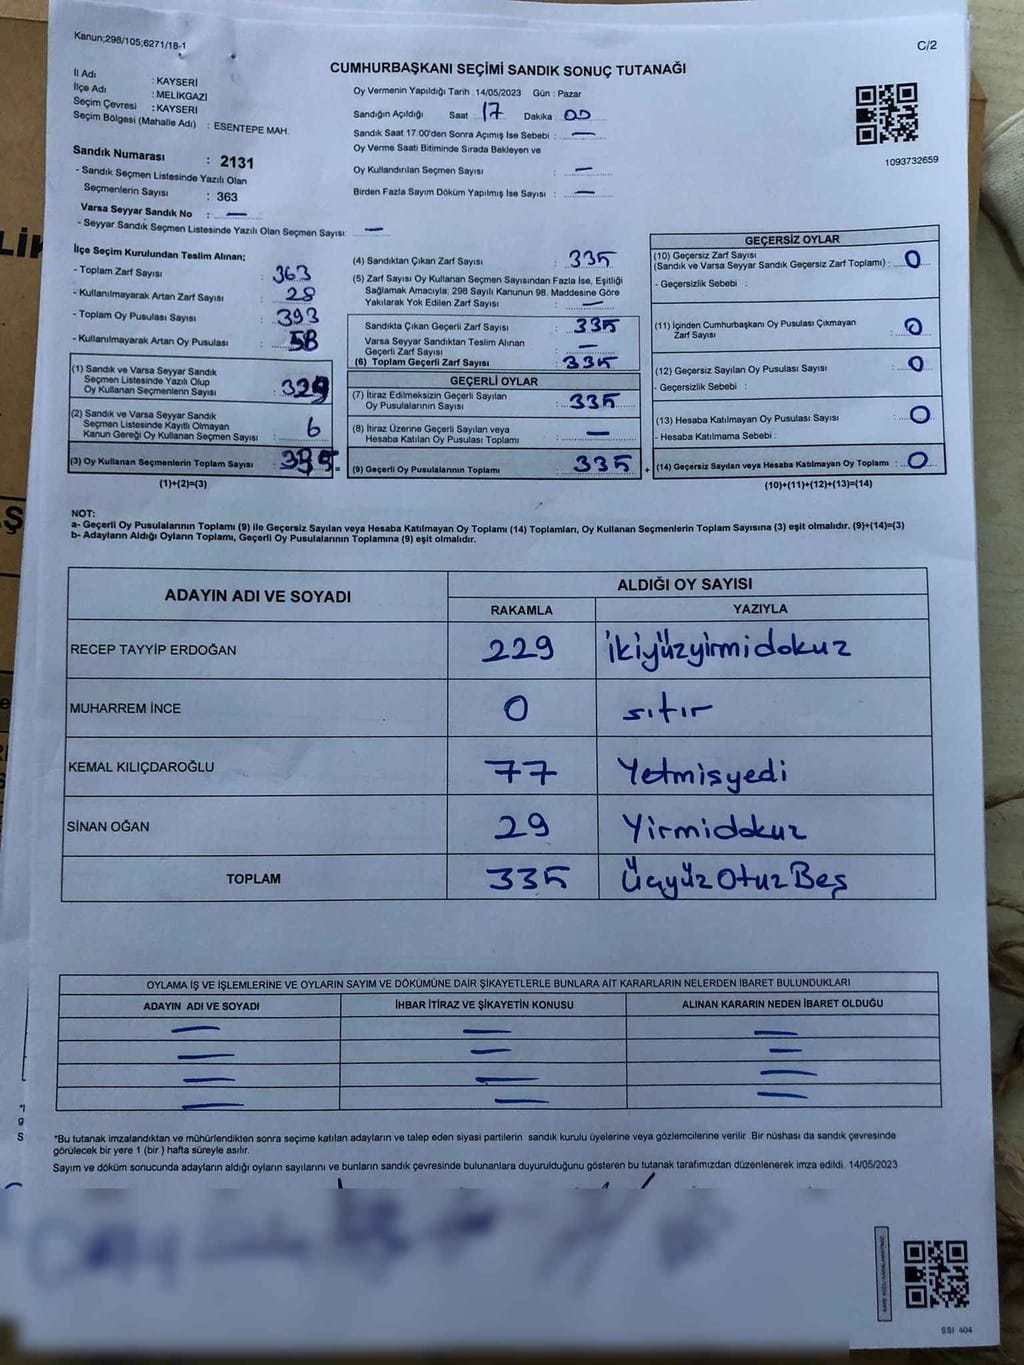 Kanun;298/105;6271/18-1
C/2
CUMHURBAŞKANI SEÇİMİ SANDIK SONUÇ TUTANAĞI
İl Adı : KAYSERİ
İlçe Adı : MELİKGAZİ
Seçim Çevresi : KAYSERİ
Seçim Bölgesi (Mahalle Adı) : ESENTEPE MAH.
Sandık Numarası : 2131
- Sandık Seçmen Listesinde Yazılı Olan
Seçmenlerin Sayısı : 363
Varsa Seyyar Sandık No : —
- Seyyar Sandık Seçmen Listesinde Yazılı Olan Seçmen Sayısı: —
Oy Vermenin Yapıldığı Tarih : 14/05/2023 Gün : Pazar
Sandığın Açıldığı Saat 17 Dakika 00
Sandık Saat 17:00'den Sonra Açılmış İse Sebebi : —
Oy Verme Saati Bitiminde Sırada Bekleyen ve
Oy Kullandırılan Seçmen Sayısı : —
Birden Fazla Sayım Döküm Yapılmış İse Sayısı : —
1093732659
İlçe Seçim Kurulundan Teslim Alınan;
- Toplam Zarf Sayısı : 363
- Kullanılmayarak Artan Zarf Sayısı : 28
- Toplam Oy Pusulası Sayısı : 393
- Kullanılmayarak Artan Oy Pusulası : 58
(1) Sandık ve Varsa Seyyar Sandık
Seçmen Listesinde Yazılı Olup
Oy Kullanan Seçmenlerin Sayısı : 329
(2) Sandık ve Varsa Seyyar Sandık
Seçmen Listesinde Kayıtlı Olmayan
Kanun Gereği Oy Kullanan Seçmen Sayısı : 6
(3) Oy Kullanan Seçmenlerin Toplam Sayısı : 335 =
(1)+(2)=(3)
(4) Sandıktan Çıkan Zarf Sayısı : 335
(5) Zarf Sayısı Oy Kullanan Seçmen Sayısından Fazla İse, Eşitliği
Sağlamak Amacıyla; 298 Sayılı Kanunun 98. Maddesine Göre
Yakılarak Yok Edilen Zarf Sayısı : —
Sandıkta Çıkan Geçerli Zarf Sayısı : 335
Varsa Seyyar Sandıktan Teslim Alınan
Geçerli Zarf Sayısı : —
(6) Toplam Geçerli Zarf Sayısı : 335
GEÇERLİ OYLAR
(7) İtiraz Edilmeksizin Geçerli Sayılan
Oy Pusulalarının Sayısı : 335
(8) İtiraz Üzerine Geçerli Sayılan veya
Hesaba Katılan Oy Pusulası Toplamı : —
(9) Geçerli Oy Pusulalarının Toplamı : 335 +
GEÇERSİZ OYLAR
(10) Geçersiz Zarf Sayısı
(Sandık ve Varsa Seyyar Sandık Geçersiz Zarf Toplamı) : 0
- Geçersizlik Sebebi :
(11) İçinden Cumhurbaşkanı Oy Pusulası Çıkmayan
Zarf Sayısı : 0
(12) Geçersiz Sayılan Oy Pusulası Sayısı : 0
- Geçersizlik Sebebi :
(13) Hesaba Katılmayan Oy Pusulası Sayısı : 0
- Hesaba Katılmama Sebebi :
(14) Geçersiz Sayılan veya Hesaba Katılmayan Oy Toplamı : 0
(10)+(11)+(12)+(13)=(14)
NOT:
a- Geçerli Oy Pusulalarının Toplamı (9) ile Geçersiz Sayılan veya Hesaba Katılmayan Oy Toplamı (14) Toplamları, Oy Kullanan Seçmenlerin Toplam Sayısına (3) eşit olmalıdır. (9)+(14)=(3)
b- Adayların Aldığı Oyların Toplamı, Geçerli Oy Pusulalarının Toplamına (9) eşit olmalıdır.
ADAYIN ADI VE SOYADI ALDIĞI OY SAYISI
RAKAMLA YAZIYLA
RECEP TAYYİP ERDOĞAN 229 ikiyüzyirmidokuz
MUHARREM İNCE 0 sıfır
KEMAL KILIÇDAROĞLU 77 Yetmişyedi
SİNAN OĞAN 29 Yirmidokuz
TOPLAM 335 ÜçyüzOtuzBeş
OYLAMA İŞ VE İŞLEMLERİNE VE OYLARIN SAYIM VE DÖKÜMÜNE DAİR ŞİKAYETLERLE BUNLARA AİT KARARLARIN NELERDEN İBARET BULUNDUKLARI
ADAYIN ADI VE SOYADI İHBAR İTİRAZ VE ŞİKAYETİN KONUSU ALINAN KARARIN NEDEN İBARET OLDUĞU
— — —
— — —
— — —
— — —
*Bu tutanak imzalandıktan ve mühürlendikten sonra seçime katılan adayların ve talep eden siyasi partilerin sandık kurulu üyelerine veya gözlemcilerine verilir. Bir nüshası da sandık çevresinde
görülecek bir yere 1 (bir) hafta süreyle asılır.
Sayım ve döküm sonucunda adayların aldığı oyların sayılarını ve bunların sandık çevresinde bulunanlara duyurulduğunu gösteren bu tutanak tarafımızdan düzenlenerek imza edildi. 14/05/2023
ŞSI 404